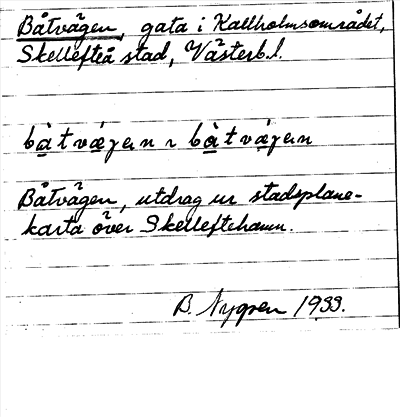 Båtvägen, gata i Kallholmsområdet,
Skellefteå stad, Västerb.l.
Båtvägen, utdrag ur stadsplane-
karta över Skelleftehamn.
B. Nygren 1933.